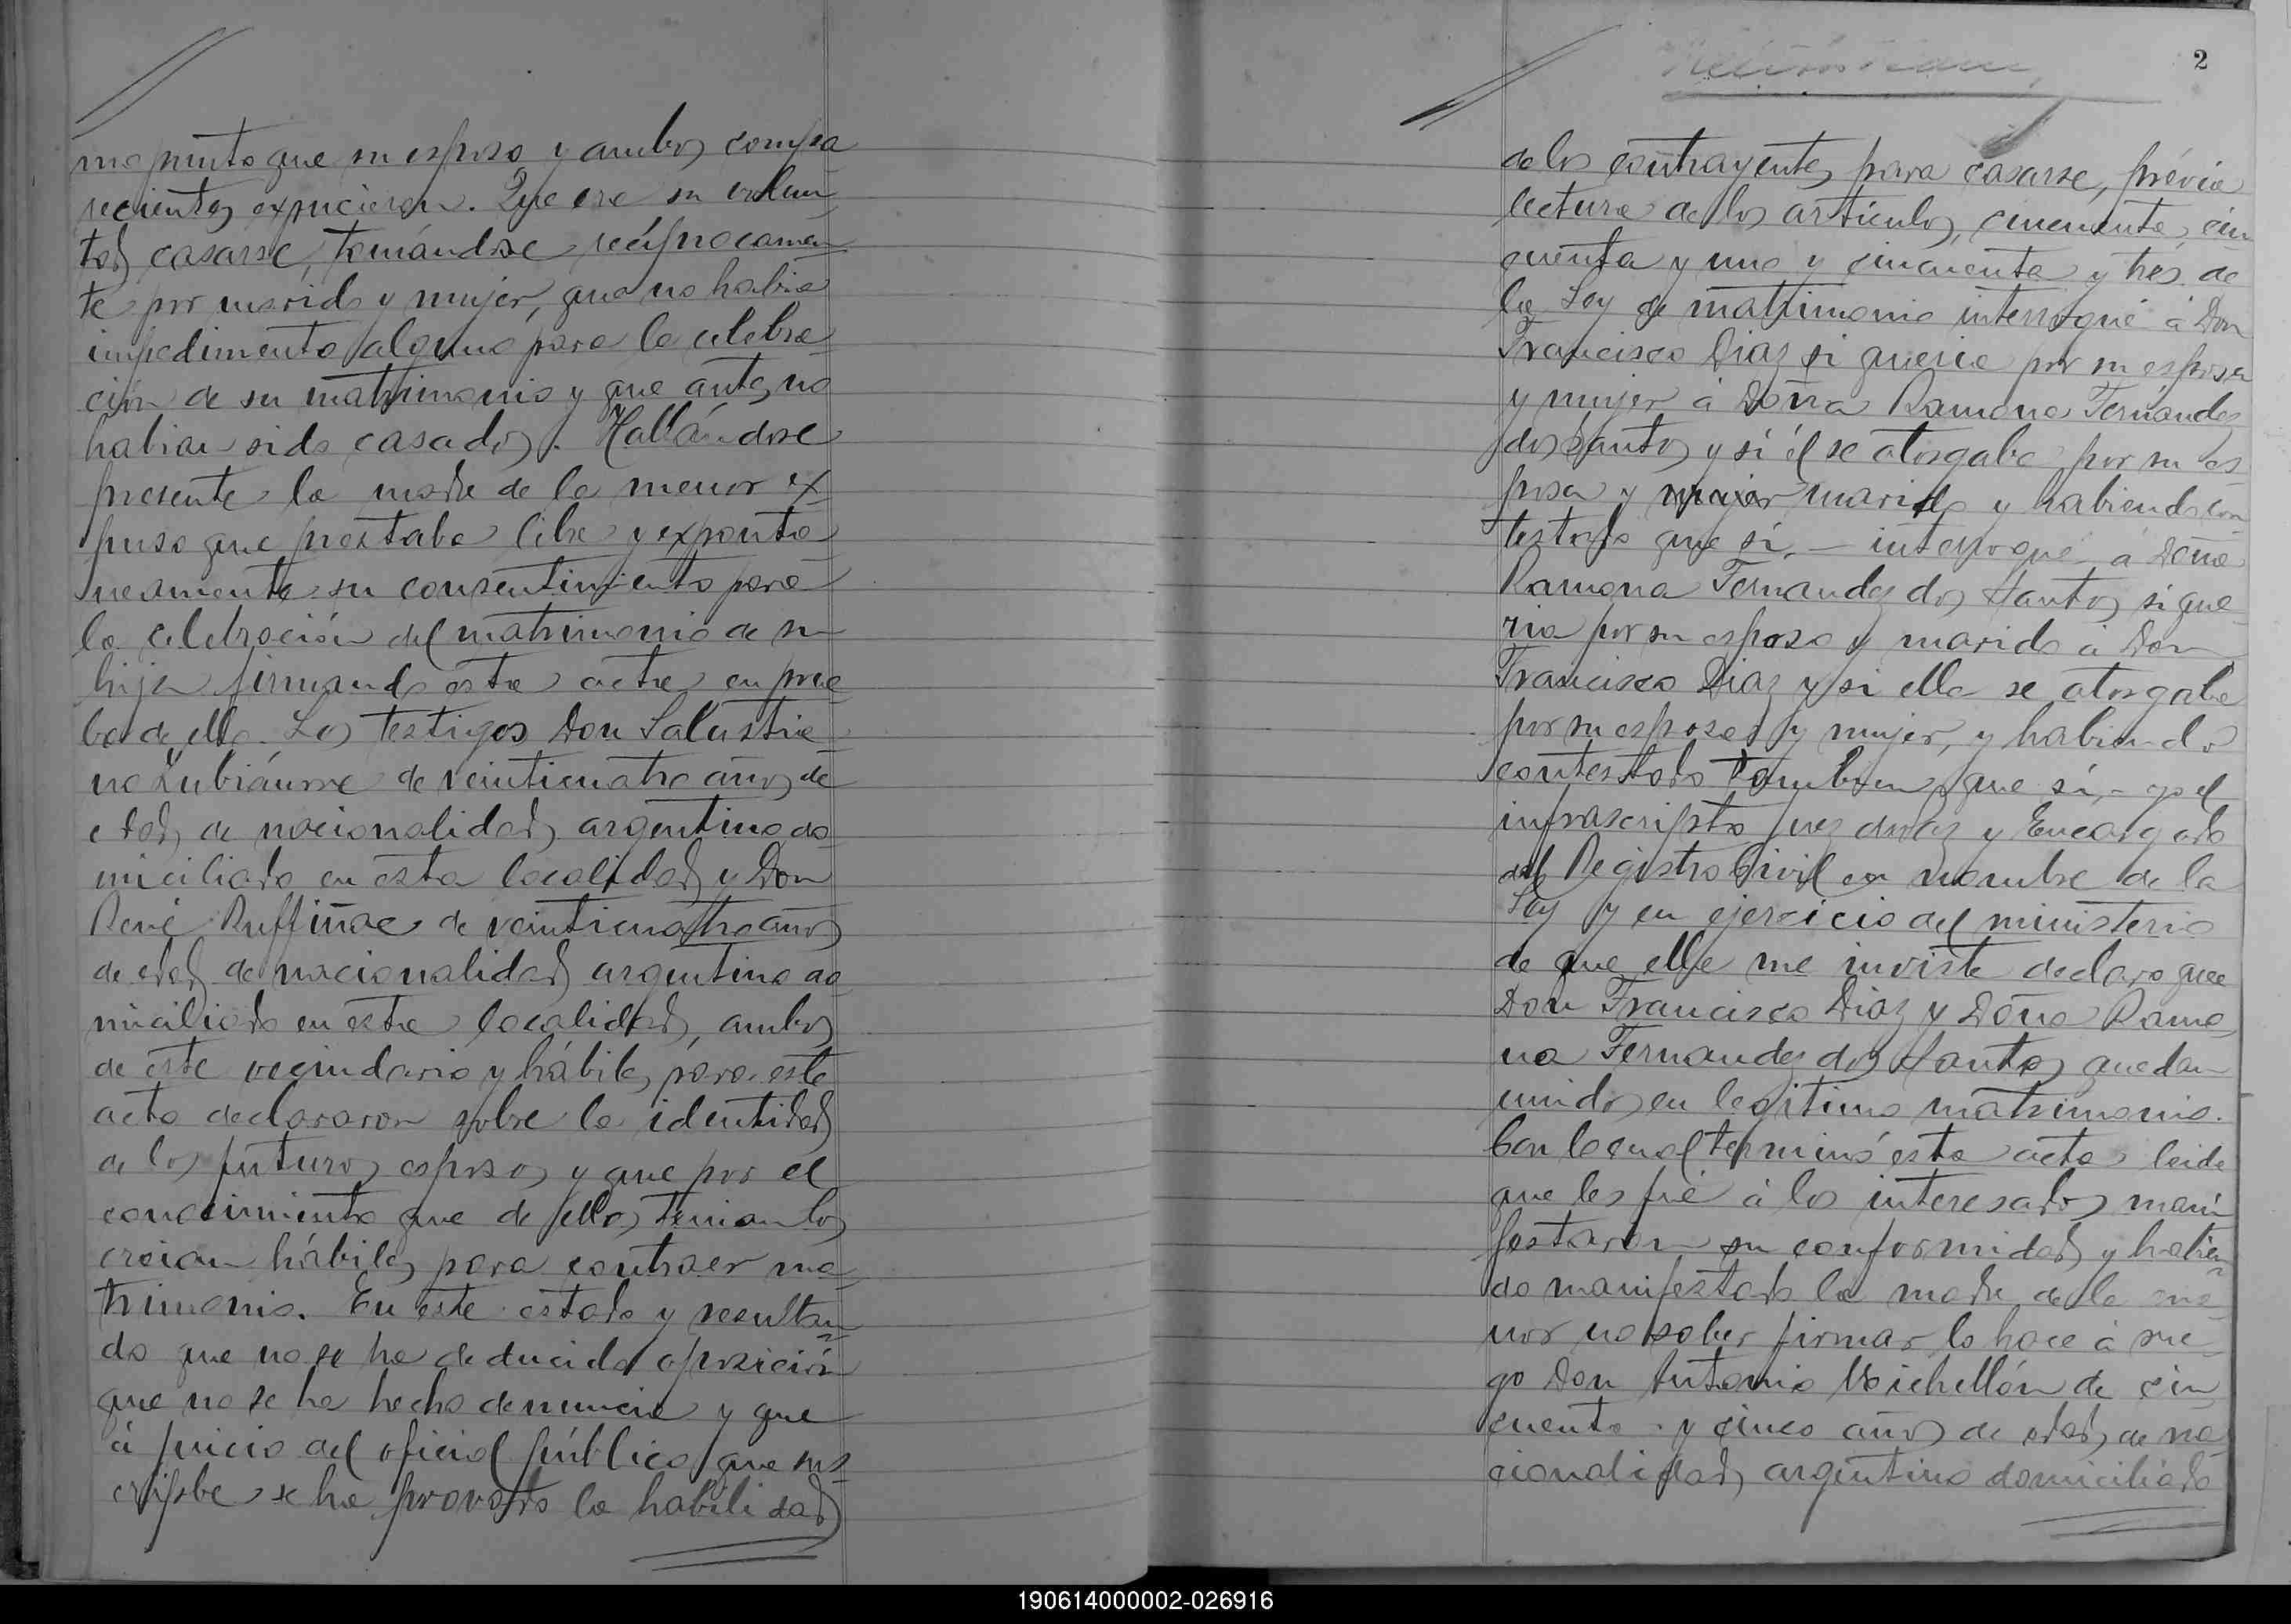 mo punto que su esposo y ambos compa
recientes expucieron. Que era su volun
tad casarse, tomándose recíprocamen
te por marido y mujer, que no habia
impedimento alguno para la celebra
ción de su matrimonio y que antes no
habian sido casados. Hallándose
presente la madre de la menor ex
puso que prestaba libre y exponta
neamente su consentimiento para
la celebración del matrimonio de su
hija firmando esta acta en prue
ba de ello. Los testigos Don Salustia
no Zubiáurre de veinticuatro años de
edad, de nacionalidad argentino do
miciliado en esta localidad y Don
René Ruffiñac de veinticuatro años
de edad de nacionalidad argentino do
miciliado en esta localidad, ambos
de este vecindario y hábiles para este
acto declararon sobre la identidad
de los futuros esposos y que por el
conocimiento que de ellos tenian los
creian hábiles para contraer ma
trimonio. En este estado y resultan
do que no se ha deducido oposición
que no se ha hecho denuncia y que
á juicio del oficial público que sus
cribe se ha provado la habilidad
2
de los contrayentes para casarse, prévia
lectura de los artículos, cincuenta, cin
cuenta y uno y cincuenta y tres de
la Ley de matrimonio interrogué á Don
Francisco Diaz si queria por su esposa
y mujer á Doña Ramona Fernandez
dos Santos y si él se otorgaba por su es
posa y mujer marido y habiendo con
testado que sí, — interrogué á Doña
Ramona Fernandez dos Santos si que
ria por su esposo y marido á Don
Francisco Diaz y si ella se otorgaba
por su esposa y mujer, y habiendo
contestado tambien que sí, - yo el
infrascripto Juez de Paz y Encargado
del Registro Civil en nombre de la
Ley y en ejercicio del ministerio
de que ella me inviste declaro que
Don Francisco Diaz y Doña Ramo
na Fernandez dos Santos quedan
unidos en legitimo matrimonio.
Con lo cual terminó esta acta leida
que les fué á los interesados mani
festaron su conformidad y habien
do manifestado la madre de la me
nor no saber firmar lo hace á rue
go Don Antonio Michellón de cin
cuenta y cinco años de edad, de na
cionalidad argentino domiciliado
190614000002-026916